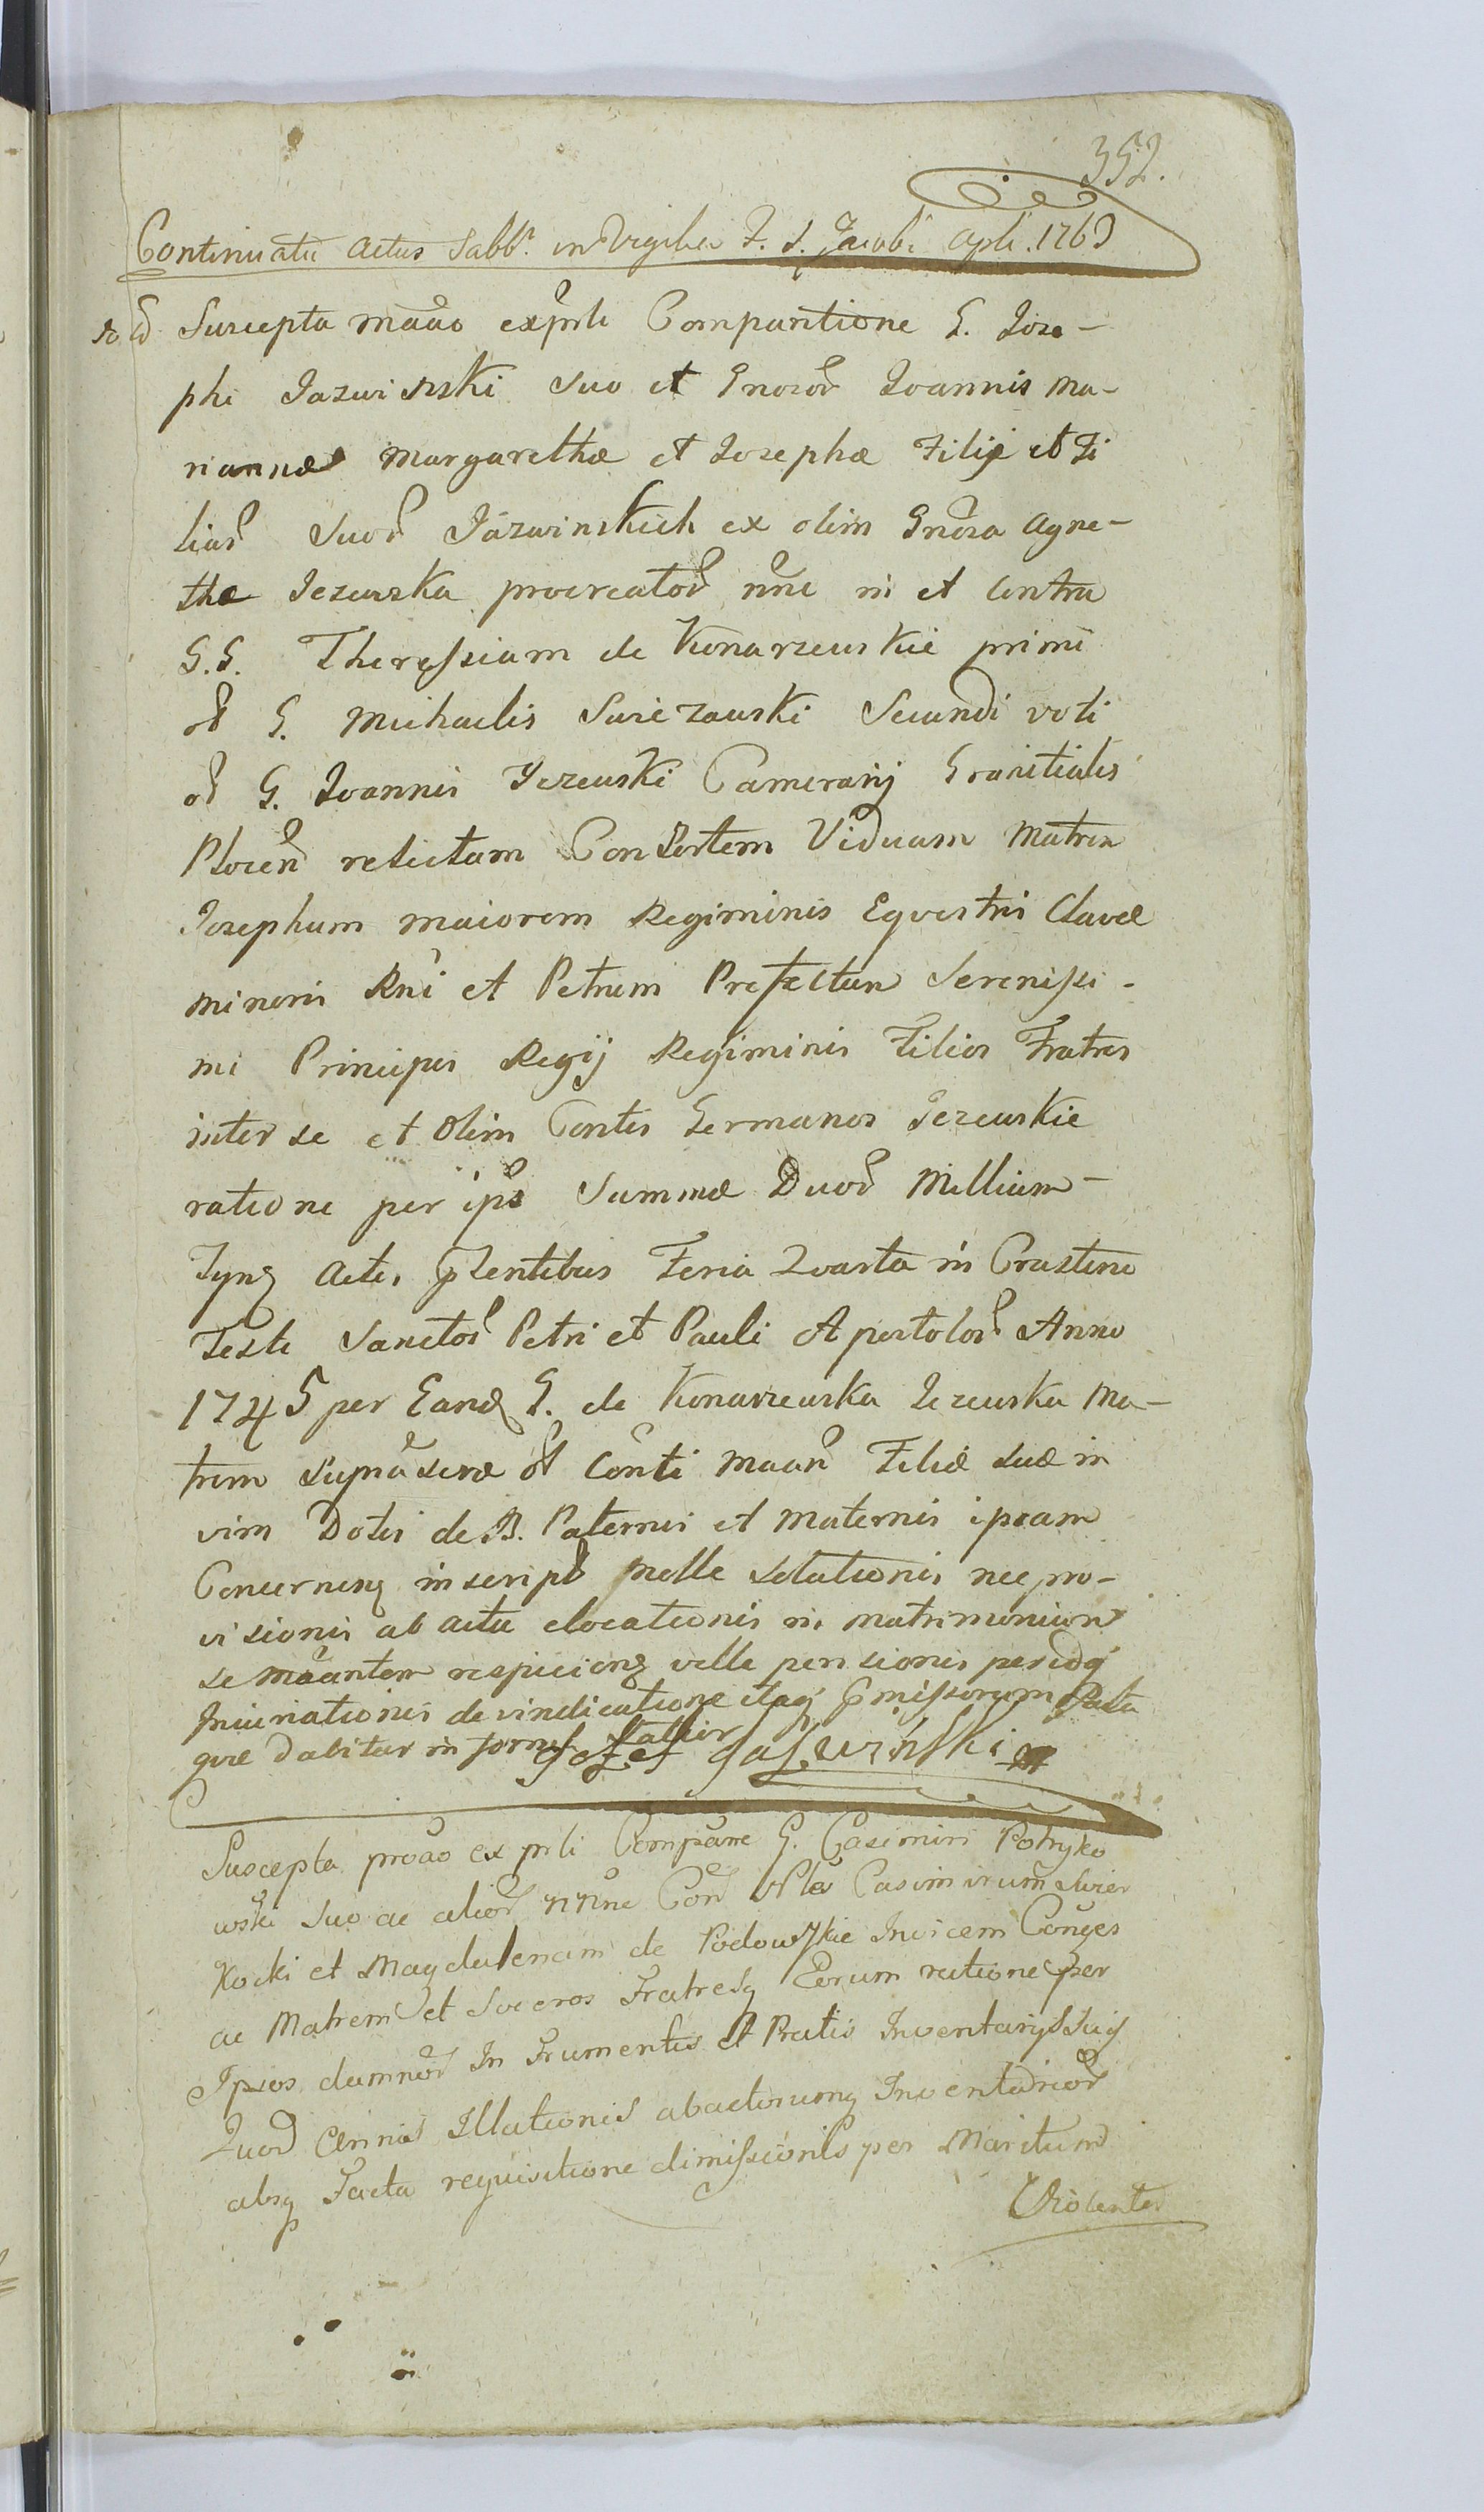 352.
Continuatũ Actus Sabbto in Vigilia F. S. Jacobi Apli. 1763
Suscepta mãão exprli Comparitione G. Jose-
phi Jazwinski suo et Gnorod Joannis Ma-
riannæ Margarethæ et Josephæ Filij et Fi
liar suor Jázwinskich ex olim Gnosa Agne-
the Jezewska procreator nñe in et contra
G.G. Theressiam de Konarzewskie primi
G. Michaelis Swiezawski Secundi voti
G. Joannis Jezewski Camerarij Granitialis
Plocen relictam Consortem Viduam Matrem
Josephum maiorem Regiminis Equestris Clavæ
minoris Rni et Petrum Prefectum Serenissi-
mi Principis Regij Regiminis Filios Fratres
inter se et Olim Contis Germanos Jezewskie
ratione per ipõs Summæ Duor Millium
Tynf Actis ptentibus Feria Quarta in Crastino
Festi Sanctor Petri et Pauli Apostolor Anno
1745 per Eand G. de Konarzewska Jezewska Ma-
trem Conti Filiæ suæ in
vim Dotis de B. Paternis et Maternis ipsam
Concernen inscript nec pro-
visionis ab actu elocationis in matrimonium
se respicien velle pensionis
de vindicatione itaq pmissorum Lata
quæ dabitur in forma Latior
Jozef Jaszwinski mp
Suscepta proão ex prli Compãrne G. Casimiri Potryko
wski suo ac alior nnne Con Casimirum Swier
kocki et Magdalenam de Podowskie Invicem Conges
ac Matrem et Soceros Fratresq Eorum ratione per
Ipsos damnor In Frumentis et Pratis Inventarijs Suis
Quor Illationis abactionumq Inventarior
absq Facta requisitione dimissionis per Maritum
Violenter